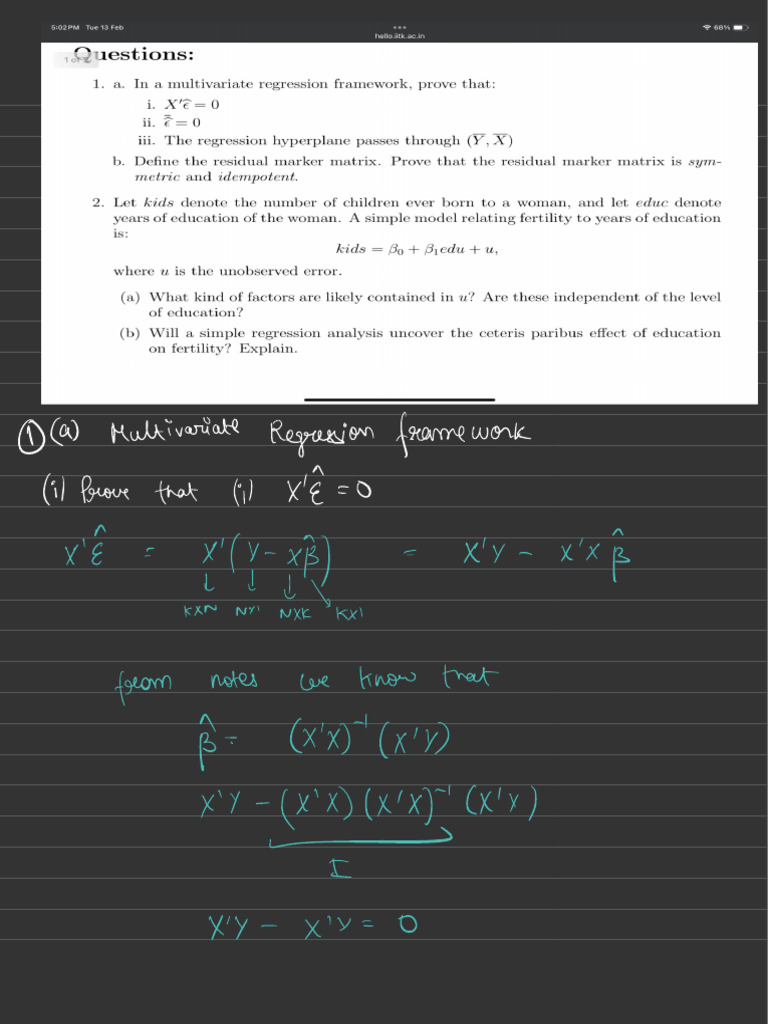 5:02 PM Tue 13 Feb
hello.iitk.ac.in
68%
Questions:
1 of 2
1. a. In a multivariate regression framework, prove that:
i. X′ϵ̂ = 0
ii. ϵ̂̄ = 0
iii. The regression hyperplane passes through (Y̅, X̅)
b. Define the residual marker matrix. Prove that the residual marker matrix is sym-
metric and idempotent.
2. Let kids denote the number of children ever born to a woman, and let educ denote
years of education of the woman. A simple model relating fertility to years of education
is:
kids = β₀ + β₁edu + u,
where u is the unobserved error.
(a) What kind of factors are likely contained in u? Are these independent of the level
of education?
(b) Will a simple regression analysis uncover the ceteris paribus effect of education
on fertility? Explain.
① (a) Multivariate Regression framework
(i) Prove that (i) X'ε̂ = 0
X'ε̂ = X'(Y - Xβ̂) = X'Y - X'Xβ̂
KXN NX1 NXK KX1
from notes we know that
β̂ = (X'X)⁻¹ (X'Y)
X'Y - (X'X)(X'X)⁻¹ (X'Y)
I
X'Y - X'Y = 0